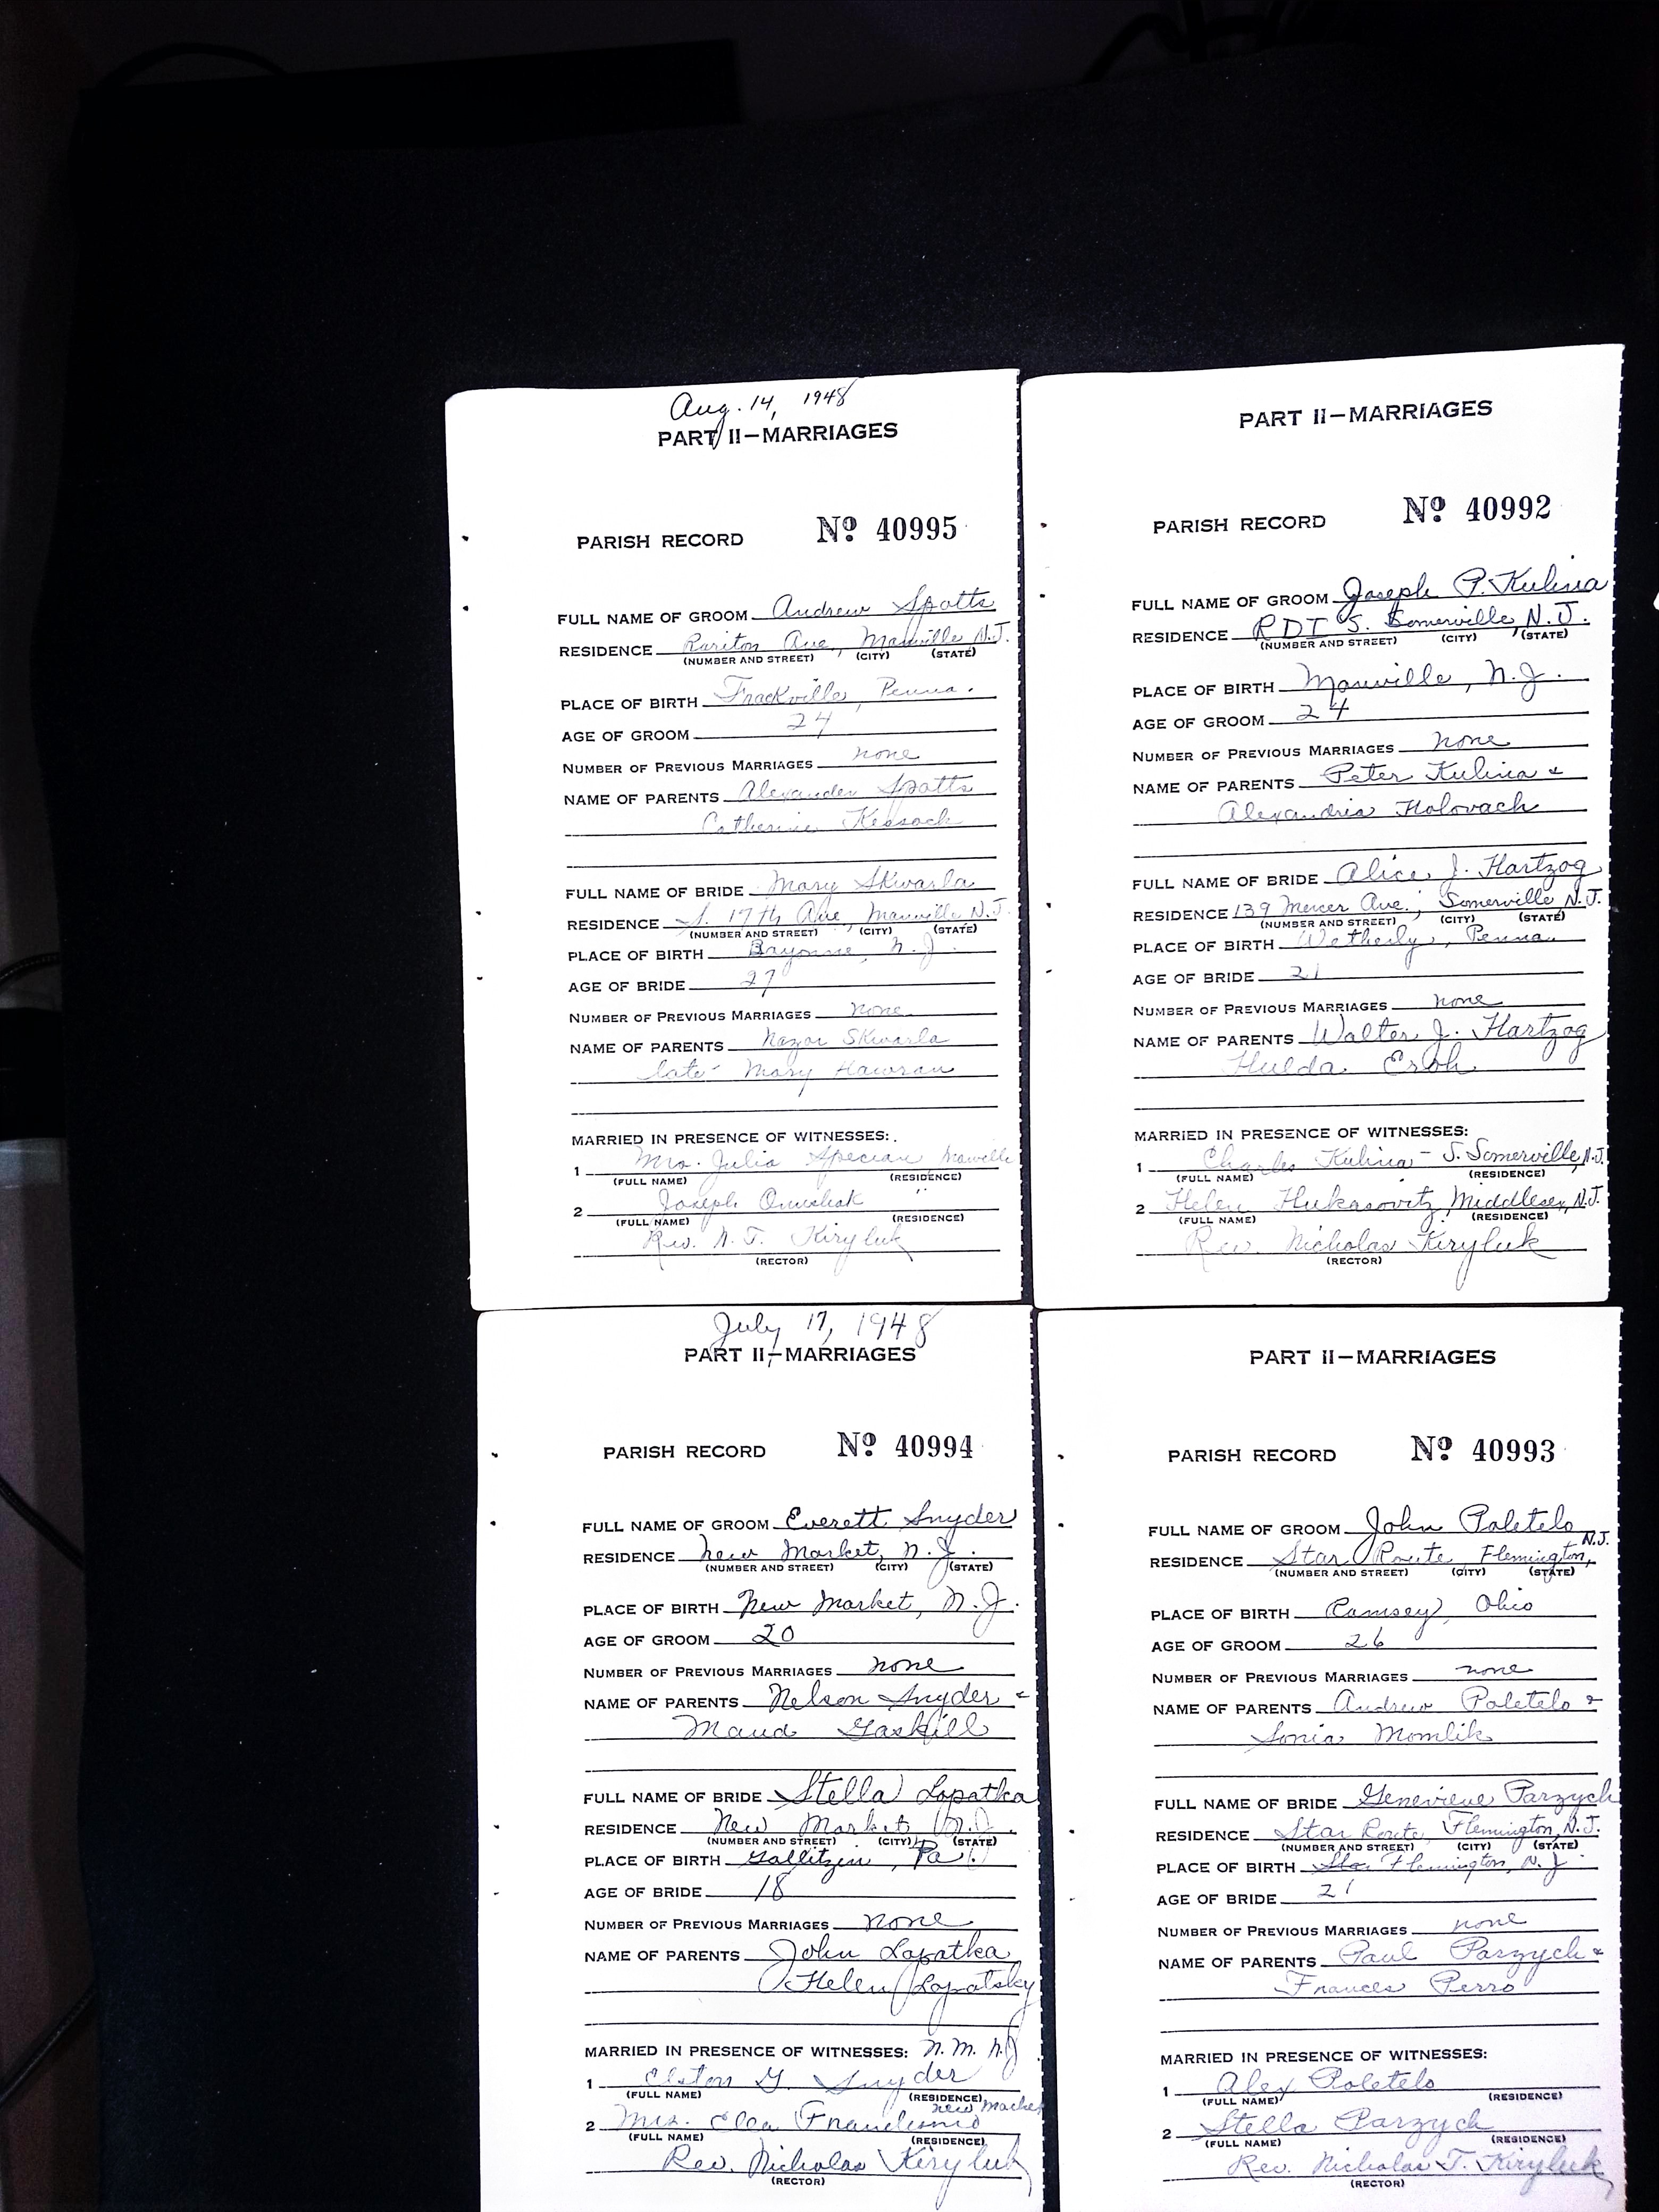 Aug. 14, 1948
PART II—MARRIAGES
PARISH RECORD Nº 40995
FULL NAME OF GROOM Andrew Spotts
RESIDENCE Rariton Ave, Manville N.J.
(NUMBER AND STREET) (CITY) (STATE)
PLACE OF BIRTH Frackville, Penna.
AGE OF GROOM 24
NUMBER OF PREVIOUS MARRIAGES none
NAME OF PARENTS Alexander Spotts
Catherine Kessock
FULL NAME OF BRIDE Mary Skwarla
RESIDENCE S. 17th Ave, Manville N.J.
(NUMBER AND STREET) (CITY) (STATE)
PLACE OF BIRTH Bayonne, N.J.
AGE OF BRIDE 27
NUMBER OF PREVIOUS MARRIAGES none
NAME OF PARENTS Nazar Skwarla
late - Mary Hawran
MARRIED IN PRESENCE OF WITNESSES:
1 Mrs. Julia Specian Manville
(FULL NAME) (RESIDENCE)
2 Joseph "
(FULL NAME) (RESIDENCE)
Rev. N. T. Kiryluk
(RECTOR)
PART II—MARRIAGES
PARISH RECORD Nº 40992
FULL NAME OF GROOM Joseph P. Kulina
RESIDENCE RD1 S. Somerville, N.J.
(NUMBER AND STREET) (CITY) (STATE)
PLACE OF BIRTH Manville, N.J.
AGE OF GROOM 24
NUMBER OF PREVIOUS MARRIAGES none
NAME OF PARENTS Peter Kulina &
Alexandria Holovach
FULL NAME OF BRIDE Alice J. Hartzog
RESIDENCE 139 Mercer Ave., Somerville N.J.
(NUMBER AND STREET) (CITY) (STATE)
PLACE OF BIRTH Wetherly, Penna.
AGE OF BRIDE 21
NUMBER OF PREVIOUS MARRIAGES none
NAME OF PARENTS Walter J. Hartzog
Hulda Eroh
MARRIED IN PRESENCE OF WITNESSES:
1 Charles Kulina - S. Somerville, N.J.
(FULL NAME) (RESIDENCE)
2 Helen Hukasovitz Middlesex, N.J.
(FULL NAME) (RESIDENCE)
Rev. Nicholas Kiryluk
(RECTOR)
July 17, 1948
PART II—MARRIAGES
PARISH RECORD Nº 40994
FULL NAME OF GROOM Everett Snyder
RESIDENCE New Market, N.J.
(NUMBER AND STREET) (CITY) (STATE)
PLACE OF BIRTH New Market, N.J.
AGE OF GROOM 20
NUMBER OF PREVIOUS MARRIAGES none
NAME OF PARENTS Nelson Snyder &
Maud Gaskill
FULL NAME OF BRIDE Stella Lopatka
RESIDENCE New Market, N.J.
(NUMBER AND STREET) (CITY) (STATE)
PLACE OF BIRTH Gallitzin, Pa.
AGE OF BRIDE 18
NUMBER OF PREVIOUS MARRIAGES none
NAME OF PARENTS John Lopatka
Helen Lopatsky
MARRIED IN PRESENCE OF WITNESSES: N.M. N.J
1 Elston G. Snyder
(FULL NAME) (RESIDENCE)
New Market
2 Mrs. Ella
(FULL NAME) (RESIDENCE)
Rev. Nicholas Kiryluk
(RECTOR)
PART II—MARRIAGES
PARISH RECORD Nº 40993
FULL NAME OF GROOM John Poletelo
N.J.
RESIDENCE Star Route, Flemington,
(NUMBER AND STREET) (CITY) (STATE)
PLACE OF BIRTH Ramsey, Ohio
AGE OF GROOM 26
NUMBER OF PREVIOUS MARRIAGES none
NAME OF PARENTS Andrew Poletelo &
Sonia Momlik
FULL NAME OF BRIDE Genevieve Parzych
RESIDENCE Star Route, Flemington, N.J.
(NUMBER AND STREET) (CITY) (STATE)
PLACE OF BIRTH Flemington, N.J.
AGE OF BRIDE 21
NUMBER OF PREVIOUS MARRIAGES none
NAME OF PARENTS Paul Parzych &
Frances Perro
MARRIED IN PRESENCE OF WITNESSES:
1 Alex Poletelo
(FULL NAME) (RESIDENCE)
2 Stella Parzych
(FULL NAME) (RESIDENCE)
Rev. Nicholas T. Kiryluk
(RECTOR)